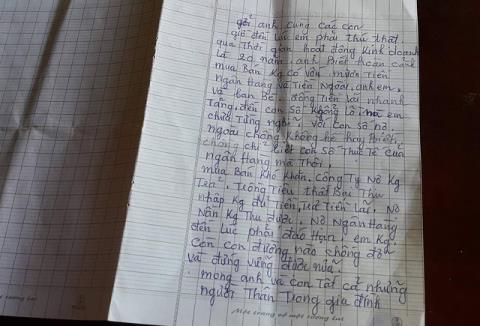 gởi anh cùng các con
giờ đến lúc em phải thú thật
qua Thời gian hoạt động Kinh doanh
là 20 năm. anh Biết hoàn cảnh
mua Bán Kg có vốn mượn Tiền
ngân Hàng và Tiền Ngoài, anh em,
và bạn Bè. đồng Tiền lãi nhanh
Tăng, đến con số Khổng lồ mà em
chưa Từng nghĩ với con số nợ
ngoài chồng Không hề hay Biết,
chồng chỉ Biết con số Thực Tế của
ngân Hàng mà Thôi.
mua Bán Khó Khăn, công Ty Nợ Kg
Trả, Trong Tiêu thất
nhập Kg đủ Tiền, Trả Tiền Lãi, Nợ
Nần Kg Thu được, Nợ Ngân Hàng
đến Lúc phải đáo Hạn, em Kg
Còn con đường nào chống đỡ
và đứng vững được nữa.
mong anh và con Tất cả những
người Thân Trong gia đình
Một trang vở một tương lai